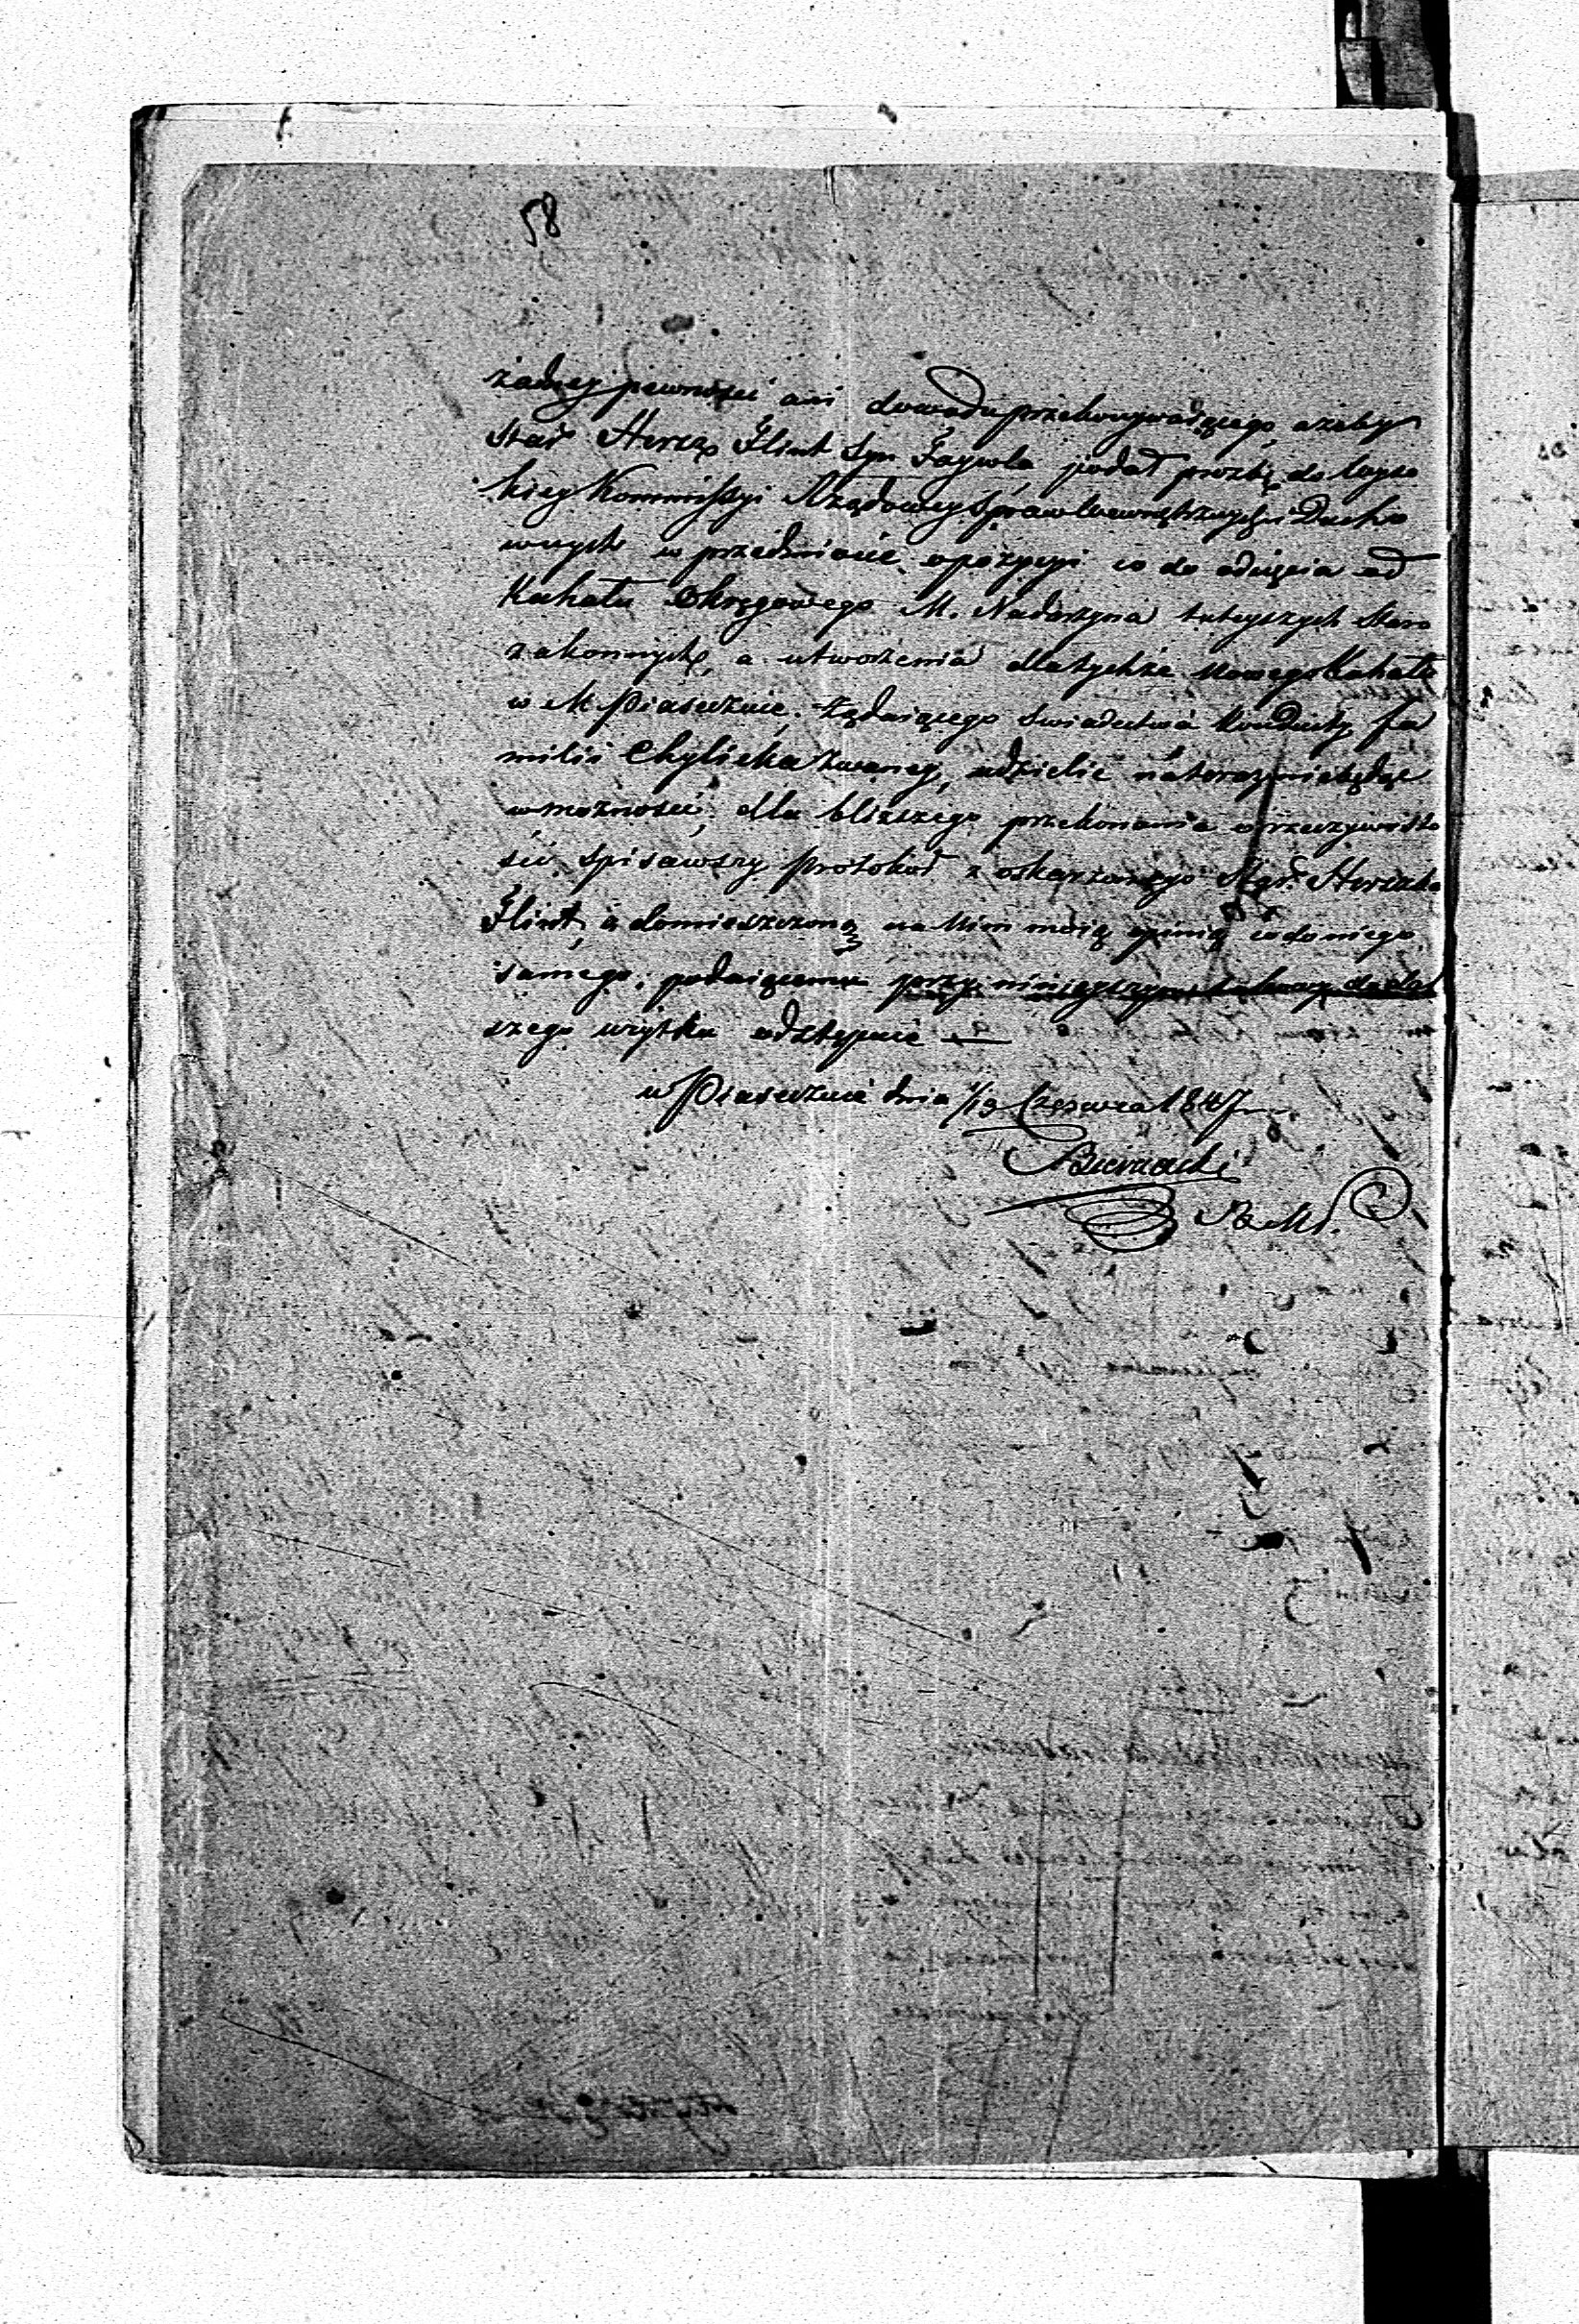 58
żadney pewności ani dowodu przekonywaiącego, ażeby
Star Herszę Flint Syn Faywla, podał prozbę do Wyso
kiey Kommissyi Rządowey Spraw Wewnętrznych i Ducho
wnych w przedmiocie opozycyi co do odcięcia od
Kahału Okręgowego M. Nadarzyna tuteyszych Staro
zakonnych, a utworzenia dla tychże nowego Kahału
w M. Piasecznie; żądaiącego Swiadectwa Konduity fa
milii Chylicka zwaney, udzielić na teraz niebędąc
w możności; dla bliższego przekonania o rzeczywisto
ści, Spisawszy Protokół z oskarżonego Herszka
Flint, a domieszczoną na Nim moią opinią co do niego
samego; podaiącemu przy ninieyszym do dal
szego użytku odstępuie —
w Piasecznie dnia 1/13 Czerwca 1847
Biernacki